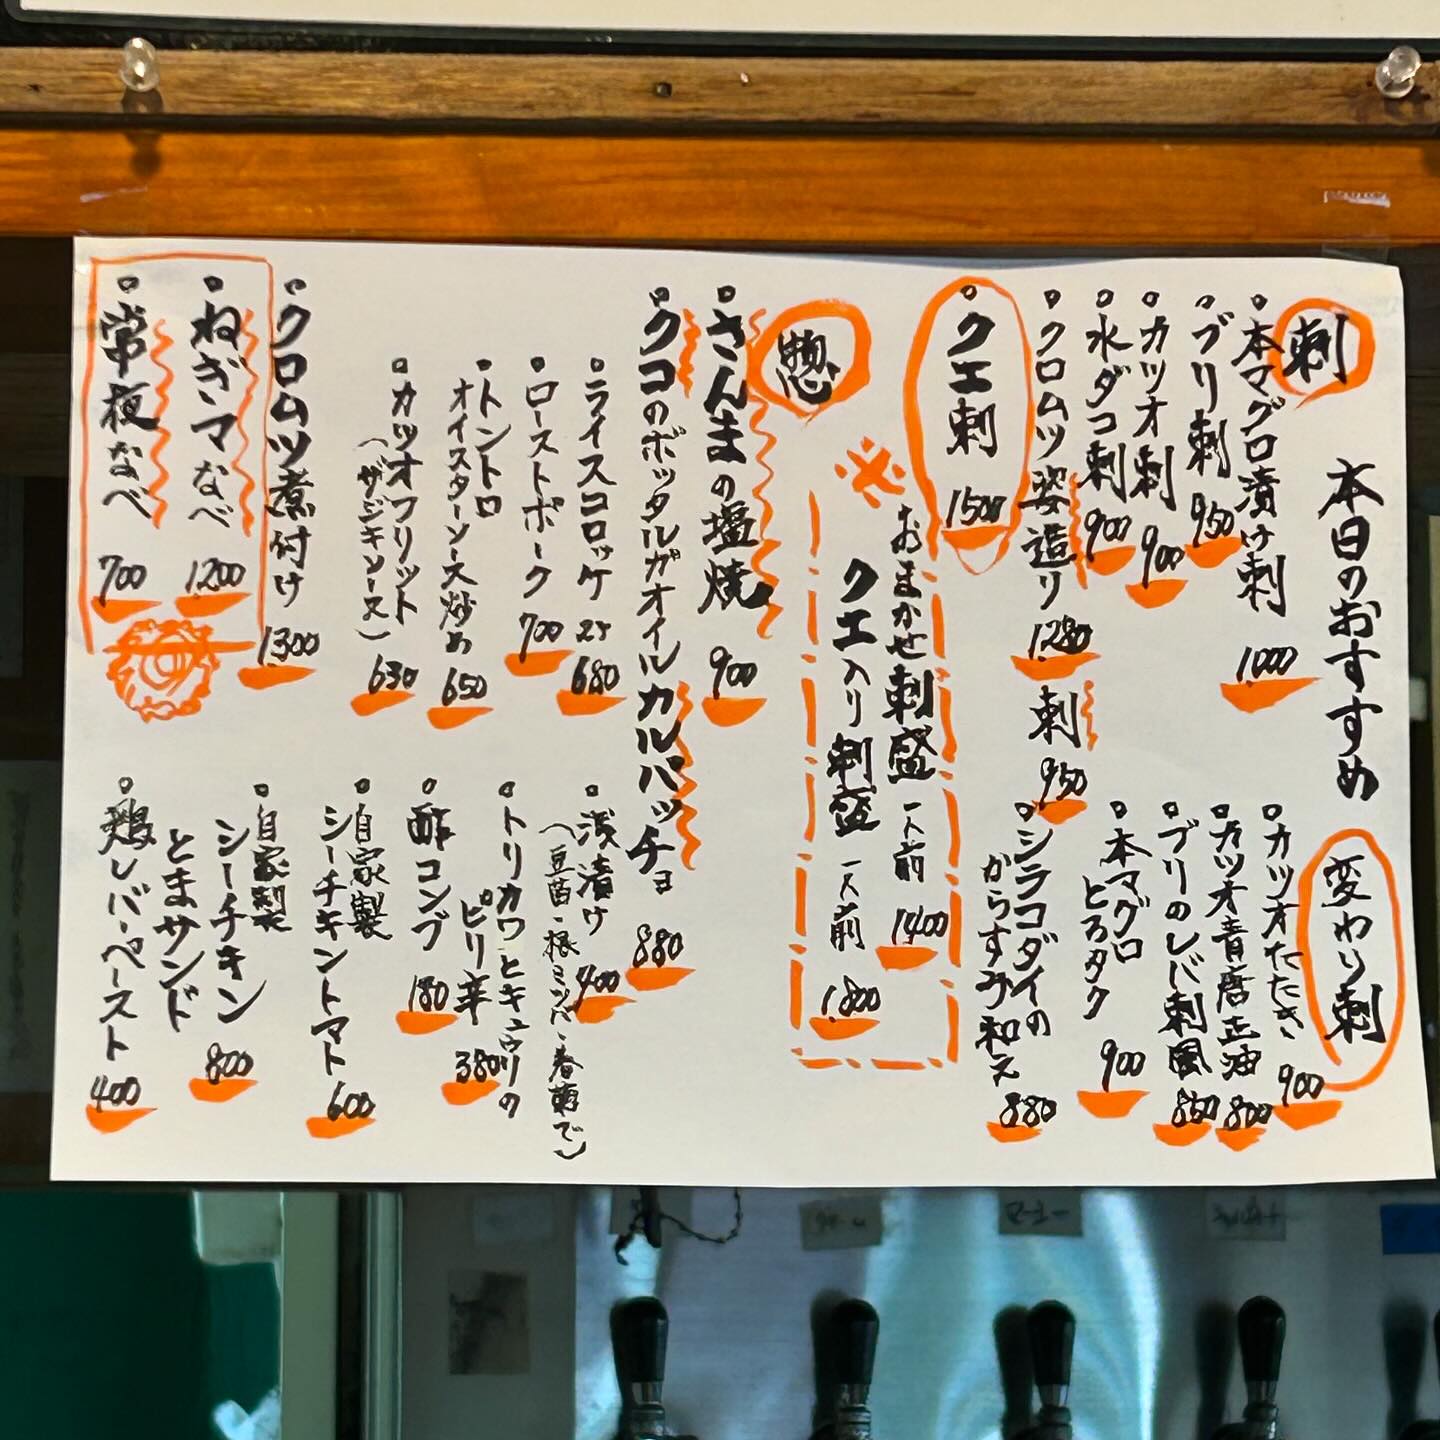 本日のおすすめ
刺
本マグロ漬け刺 1.000
ブリ刺 950
カツオ刺 900
水ダコ刺 900
クロムツ姿造り 1.280
刺 950
クエ刺 1500
変わり刺
カツオたたき 900
カツオ青唐正油 800
ブリのレバ刺風 850
本マグロ
とろタク 900
シラコダイの
からすみ和え 880
おまかせ刺盛 一人前 1400
クエ入り刺盛 一人前 1.800
惣
さんまの塩焼 900
クコのボッタルガオイルカルパッチョ 880
ライスコロッケ 2ヶ 680
ローストポーク 700
トントロ
オイスターソース炒め 650
カツオフリット
(ザジキソース) 630
クロムツ煮付け 1.300
ねぎマなべ 1.200
常夜なべ 700
浅漬け 400
(豆苗・根ミツバ・春菊で)
トリカワとキュウリの
ピリ辛 380
酢コンブ 180
自家製
シーチキントマト 600
自家製
シーチキン
とまサンド 800
鶏レバーペースト 400